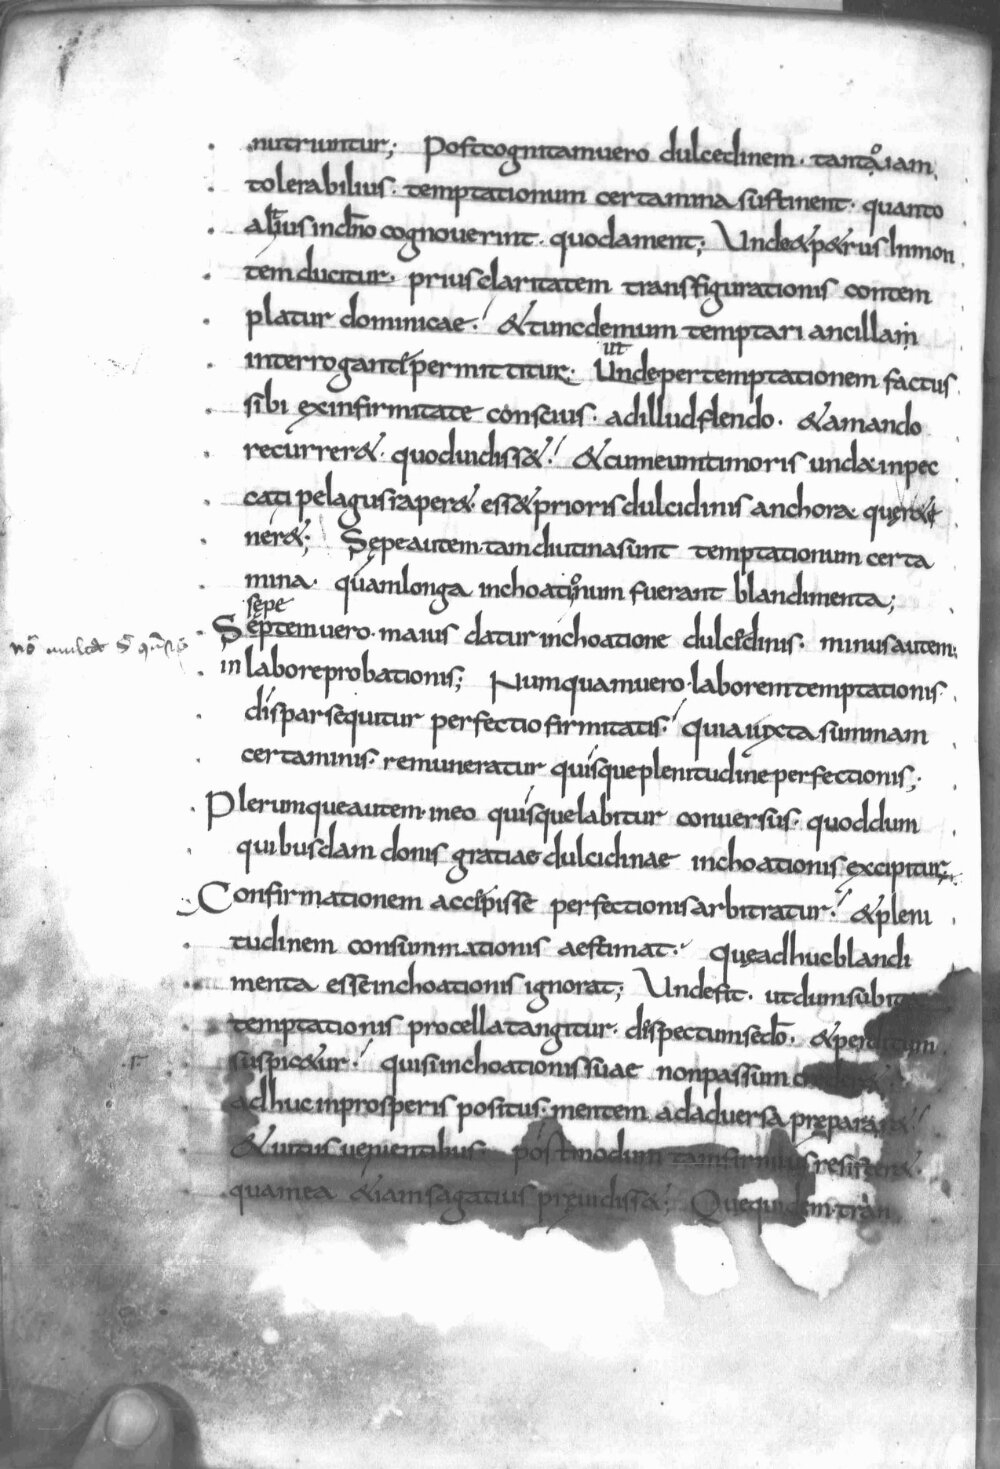 nutriuntur; Post cognitam uero dulcedinem · tantọ iam
tolerabilius · temptationum certamina sustinent · quanto
altius in dn̄o cognouerint · quod ament; Unde & p&rus In mon
tem ducitur · prius claritatem transfigurationis contem
platur dominicae ·' & tunc demum temptari ancillam
interrogante permittitur; ut Unde per temptationem factus
sibi ex infirmitate conscius · ad illud flendo · & amando
recurrer& · quod uidiss& ·' & cum eum timoris unda in pec
cati pelagus raper& · ess& prioris dulcidinis anchora quę r&i
ner&; Sępe autem · tam diutina sunt temptationum certa
mina · quam longa inchoationum fuerant blandimenta;
sępe
Sęptem uero · maius datur inchoatione dulcedinis · minus autem
in labore probationis; Numquam uero · laborem temptationis
dispar sequitur perfectio firmitatis ·' quia iuxta summam
certaminis · remuneratur quisque plenitudine perfectionis;
Plerumque autem · in eo quisque labitur conuersus · quod dum
quibusdam donis gratiae dulcidinae inchoationis excipitur
Confirmationem accepisse perfectionis arbitratur ·' & pleni
tudinem consummationis aestimat ·' Quę adhuc blandi
menta esse inchoationis ignorat; Unde fit · ut dum subita
temptationis procella tangitur · dispectum se dō · & perditum
suspic&ur ·' qui si inchoationis suae non passum
adhuc in prosperis positus · mentem ad aduersa prępara
& uitiis uenientibus · postmodum tam firmius resister&
quam ea & iam sagatius pręuidiss&; Que quidem · tran